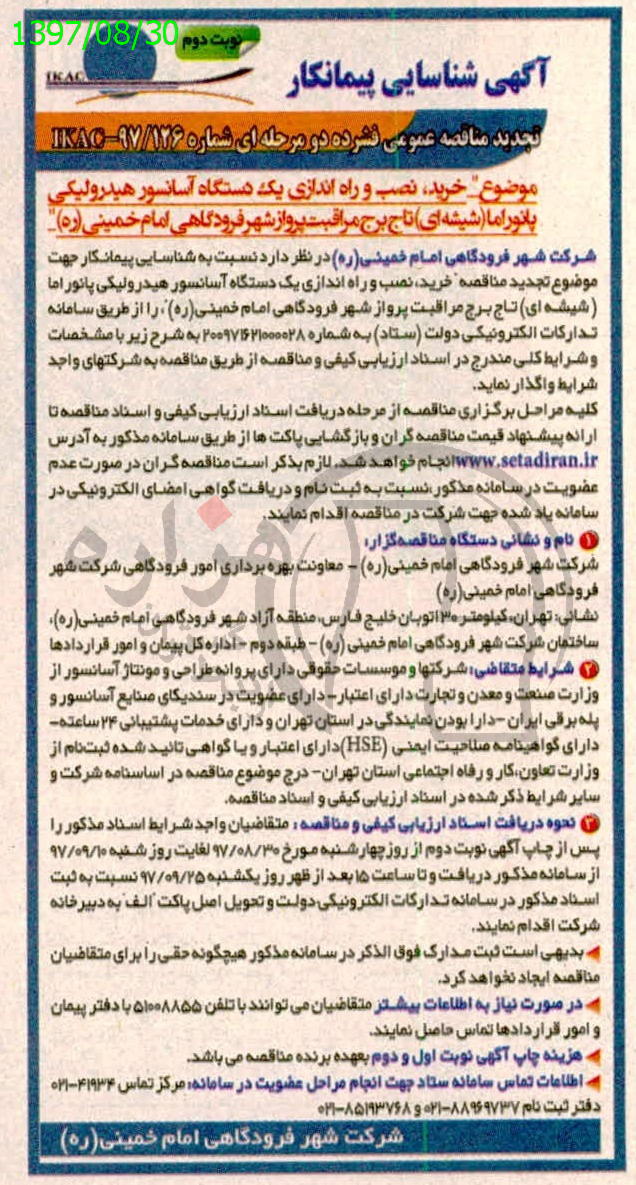 1397/08/30
نوبت دوم
IKAC
آگهی شناسایی پیمانکار
تجدید مناقصه عمومی فشرده دو مرحله ای شماره IKAC-۹۷/۱۲۶
موضوع" خرید، نصب و راه اندازی یک دستگاه آسانسور هیدرولیکی
پانوراما (شیشه ای) تاج برج مراقبت پرواز شهر فرودگاهی امام خمینی (ره)"
شرکت شهر فرودگاهی امام خمینی(ره) در نظر دارد نسبت به شناسایی پیمانکار جهت
موضوع تجدید مناقصه "خرید، نصب و راه اندازی یک دستگاه آسانسور هیدرولیکی پانوراما
(شیشه ای) تاج برج مراقبت پرواز شهر فرودگاهی امام خمینی (ره)"، را از طریق سامانه
تدارکات الکترونیکی دولت (ستاد) به شماره ۲۰۰۹۷۱۶۲۱۰۰۰۰۲۸ به شرح زیر با مشخصات
و شرایط کلی مندرج در اسناد ارزیابی کیفی و مناقصه از طریق مناقصه به شرکتهای واجد
شرایط واگذار نماید.
کلیه مراحل برگزاری مناقصه از مرحله دریافت اسناد ارزیابی کیفی و اسناد مناقصه تا
ارائه پیشنهاد قیمت مناقصه گران و بازگشایی پاکت ها از طریق سامانه مذکور به آدرس
www.setadiran.ir انجام خواهد شد. لازم بذکر است مناقصه گران در صورت عدم
عضویت در سامانه مذکور، نسبت به ثبت نام و دریافت گواهی امضای الکترونیکی در
سامانه یاد شده جهت شرکت در مناقصه اقدام نمایند.
۱ نام و نشانی دستگاه مناقصه گزار:
شرکت شهر فرودگاهی امام خمینی(ره) - معاونت بهره برداری امور فرودگاهی شرکت شهر
فرودگاهی امام خمینی (ره)
نشانی: تهران، کیلومتر ۳۰ اتوبان خلیج فارس، منطقه آزاد شهر فرودگاهی امام خمینی(ره)،
ساختمان شرکت شهر فرودگاهی امام خمینی (ره) - طبقه دوم - اداره کل پیمان و امور قراردادها
۲ شرایط متقاضی: شرکتها و موسسات حقوقی دارای پروانه طراحی و مونتاژ آسانسور از
وزارت صنعت و معدن و تجارت دارای اعتبار- دارای عضویت در سندیکای صنایع آسانسور و
پله برقی ایران - دارا بودن نمایندگی در استان تهران و دارای خدمات پشتیبانی ۲۴ ساعته-
دارای گواهینامه صلاحیت ایمنی (HSE) دارای اعتبار و یا گواهی تائید شده ثبت‌نام از
وزارت تعاون، کار و رفاه اجتماعی استان تهران- درج موضوع مناقصه در اساسنامه شرکت و
سایر شرایط ذکر شده در اسناد ارزیابی کیفی و اسناد مناقصه.
۳ نحوه دریافت اسناد ارزیابی کیفی و مناقصه : متقاضیان واجد شرایط اسناد مذکور را
پس از چاپ آگهی نوبت دوم از روز چهارشنبه مورخ ۹۷/۰۸/۳۰ لغایت روز شنبه ۹۷/۰۹/۱۰
از سامانه مذکور دریافت و تا ساعت ۱۵ بعد از ظهر روز یکشنبه ۹۷/۰۹/۲۵ نسبت به ثبت
اسناد مذکور در سامانه تدارکات الکترونیکی دولت و تحویل اصل پاکت "الف" به دبیرخانه
شرکت اقدام نمایند.
بدیهی است ثبت مدارک فوق الذکر در سامانه مذکور هیچگونه حقی را برای متقاضیان
مناقصه ایجاد نخواهد کرد.
در صورت نیاز به اطلاعات بیشتر متقاضیان می توانند با تلفن ۵۱۰۰۸۸۵۵ با دفتر پیمان
و امور قراردادها تماس حاصل نمایند.
هزینه چاپ آگهی نوبت اول و دوم بعهده برنده مناقصه می باشد.
اطلاعات تماس سامانه ستاد جهت انجام مراحل عضویت در سامانه: مرکز تماس ۴۱۹۳۴-۰۲۱
دفتر ثبت نام ۸۸۹۶۹۷۳۷-۰۲۱ و ۸۵۱۹۳۷۶۸-۰۲۱
شرکت شهر فرودگاهی امام خمینی(ره)